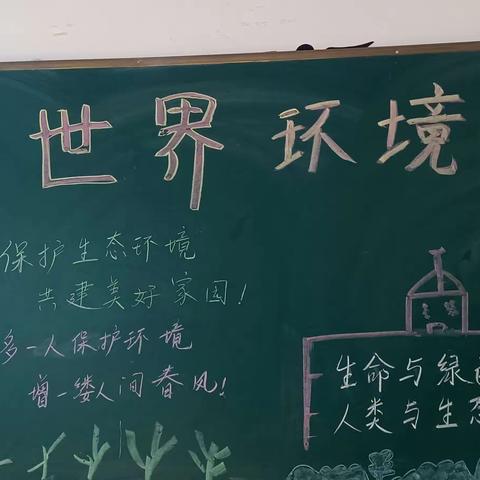 世界环境
保护生态环境
共建美好家园！
多一人保护环境
增一缕人间春风！
生命与绿
人类与生态